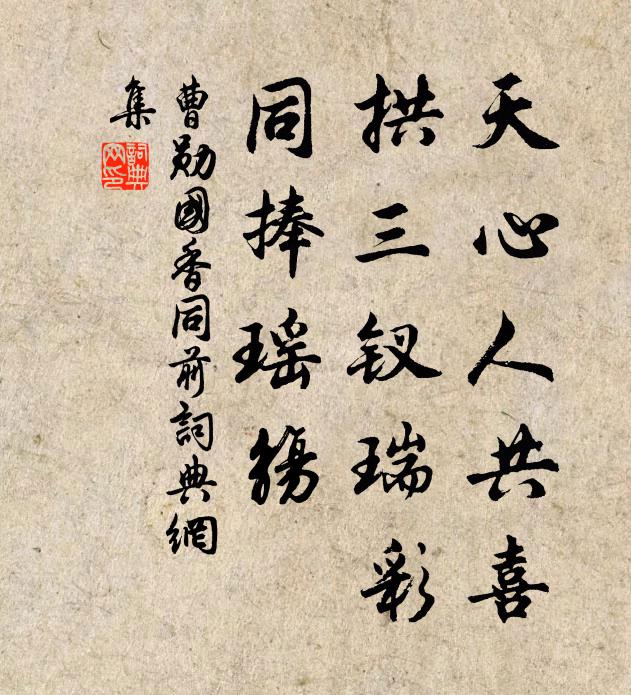 天心人共喜
拱三钗瑞彩
同捧瑶觞
曹勛國香同前詞典網
集
詞典
网印